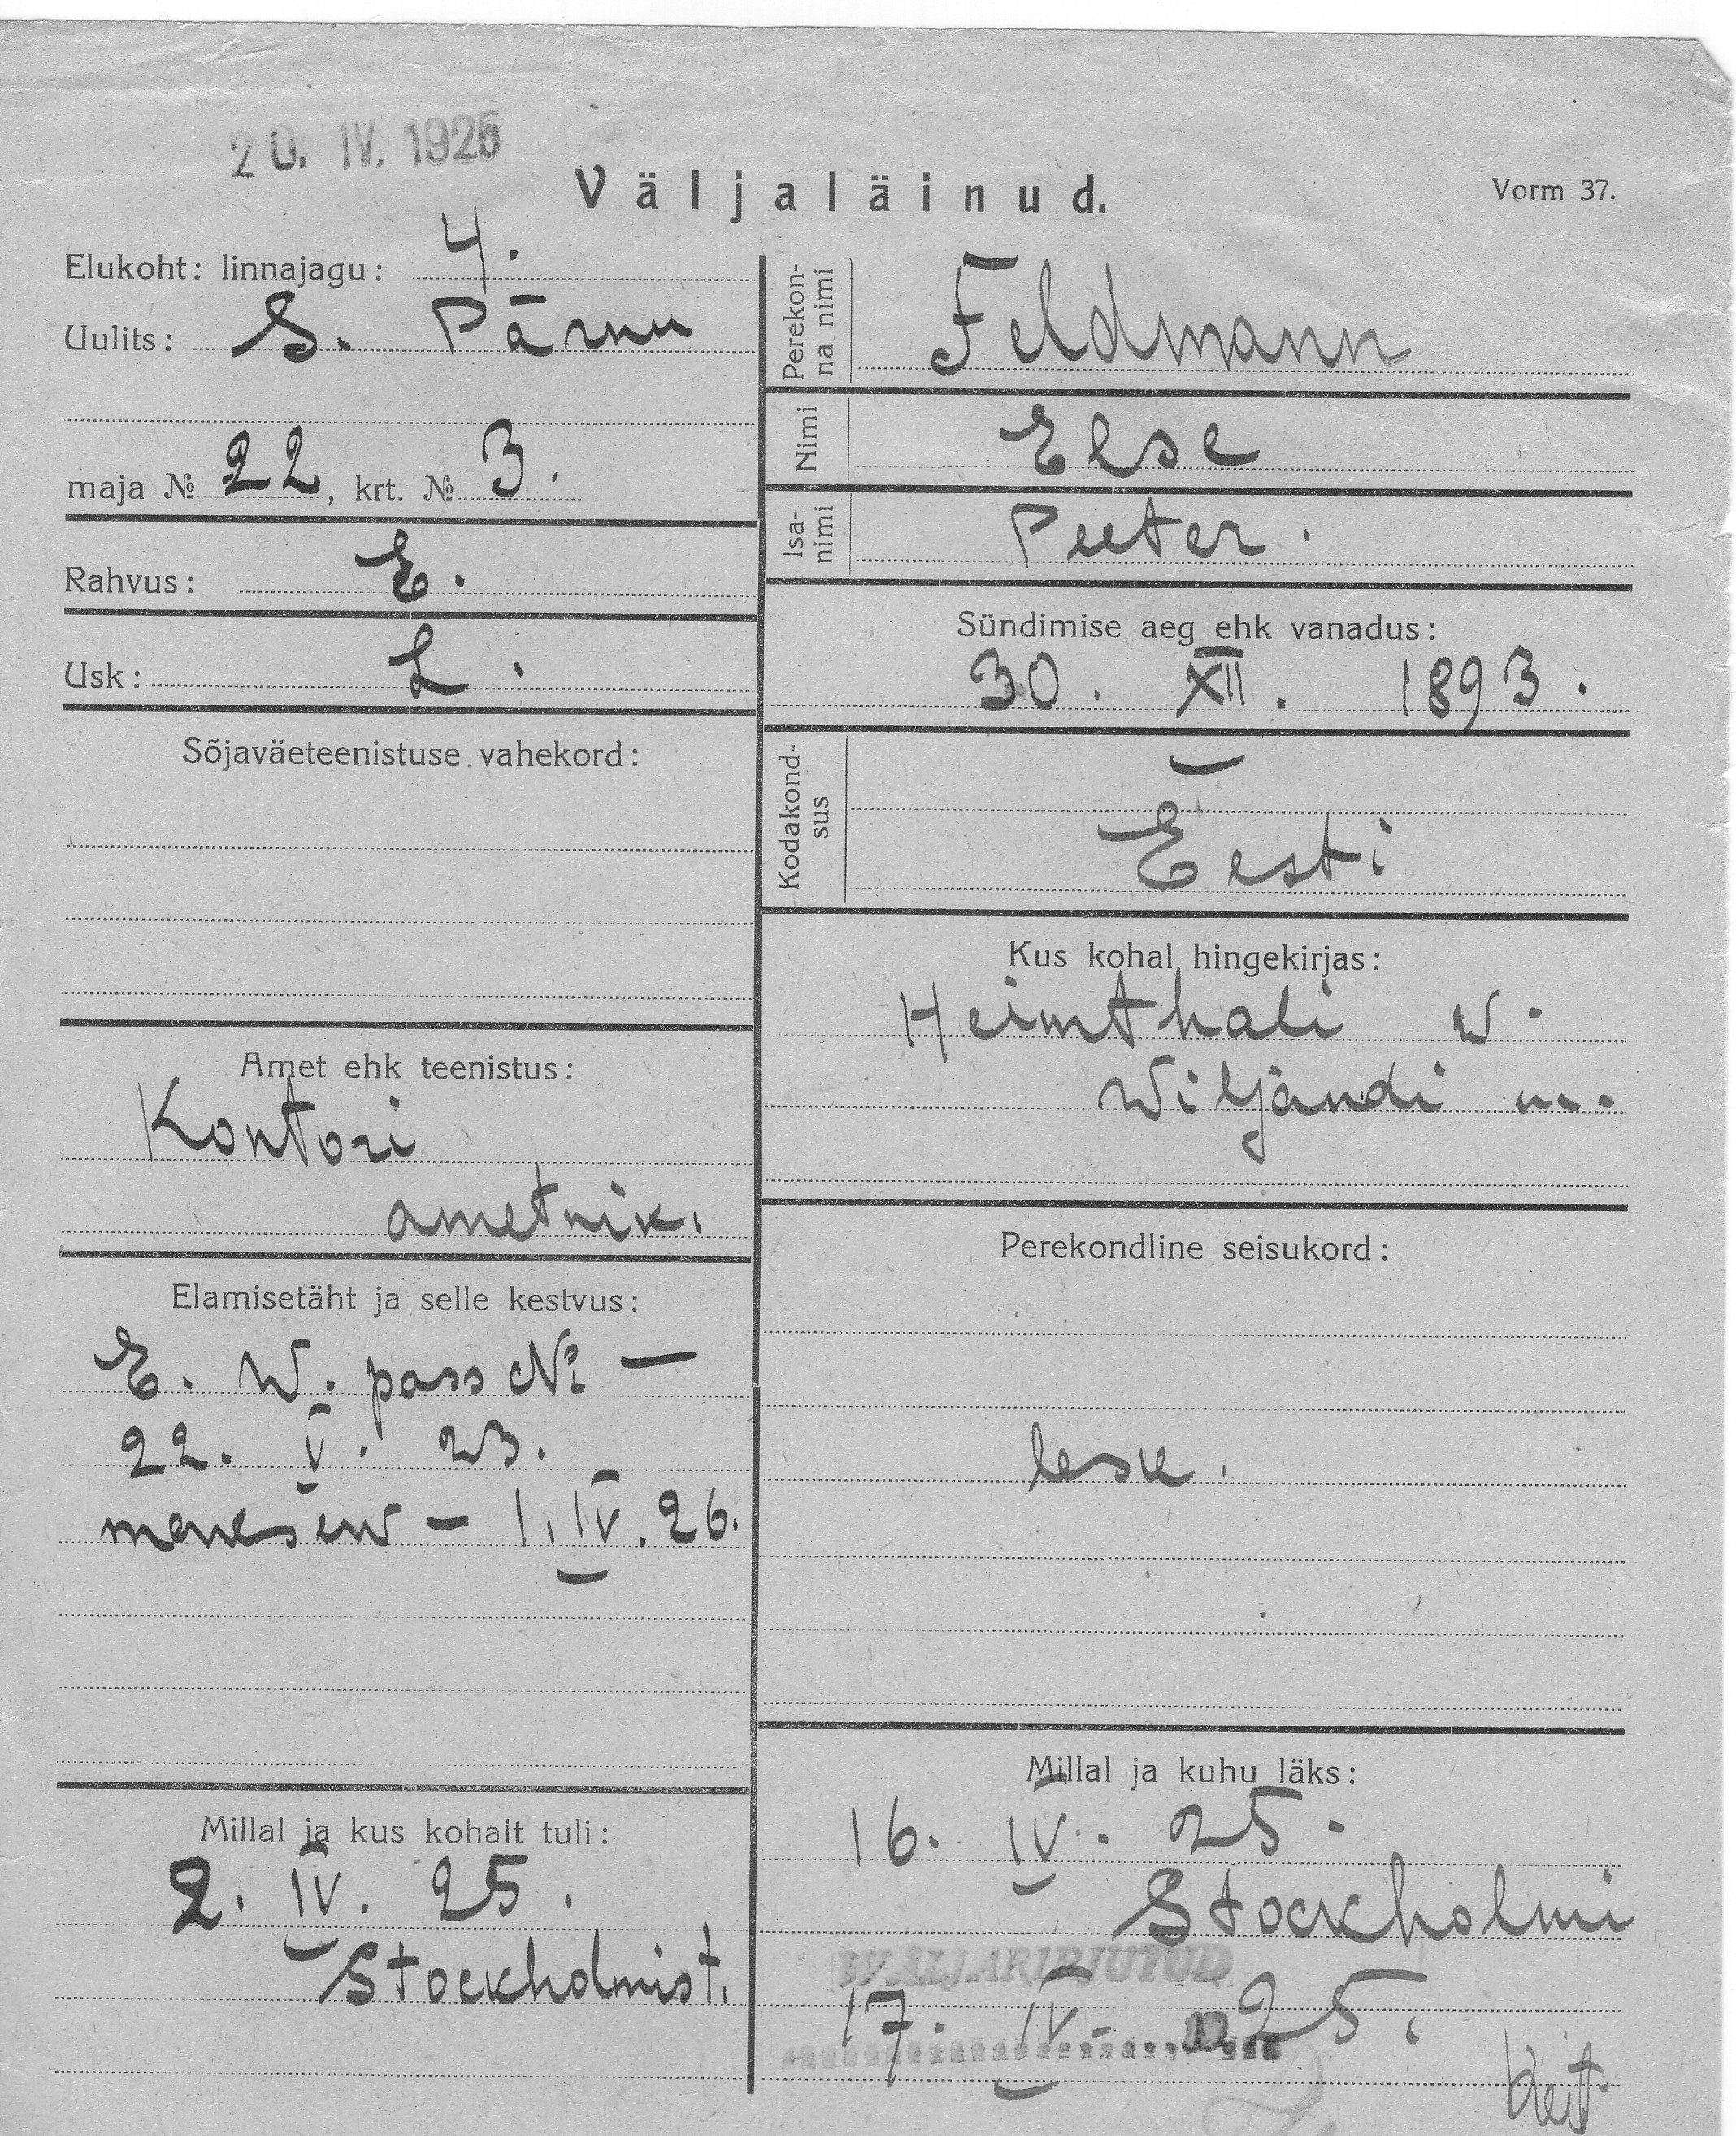 20. IV. 1925
Väljaläinud.
Vorm 37.
Elukoht: linnajagu: 4.
Uulits: S. Pärnu
maja № 22, krt. № 3.
Rahvus: E.
Usk: L.
Sõjaväeteenistuse vahekord:
Amet ehk teenistus:
Kontori
ametnik.
Elamisetäht ja selle kestvus:
E. W. pass № —
22. V. 23.
– 1. IV. 26.
Millal ja kus kohalt tuli:
2. IV. 25.
Stockholmist.
Perekon-
na nimi
Feldmann
Nimi
Else
Isa-
nimi
Peeter.
Sündimise aeg ehk vanadus:
30. XII. 1893.
Kodakond-
sus
Eesti
Kus kohal hingekirjas:
Heimthali w.
Wiljandi m.
Perekondline seisukord:
lesk.
Millal ja kuhu läks:
16. IV. 25.
Stockholmi
WÄLJAKIRJUTUD
17. IV. 25.